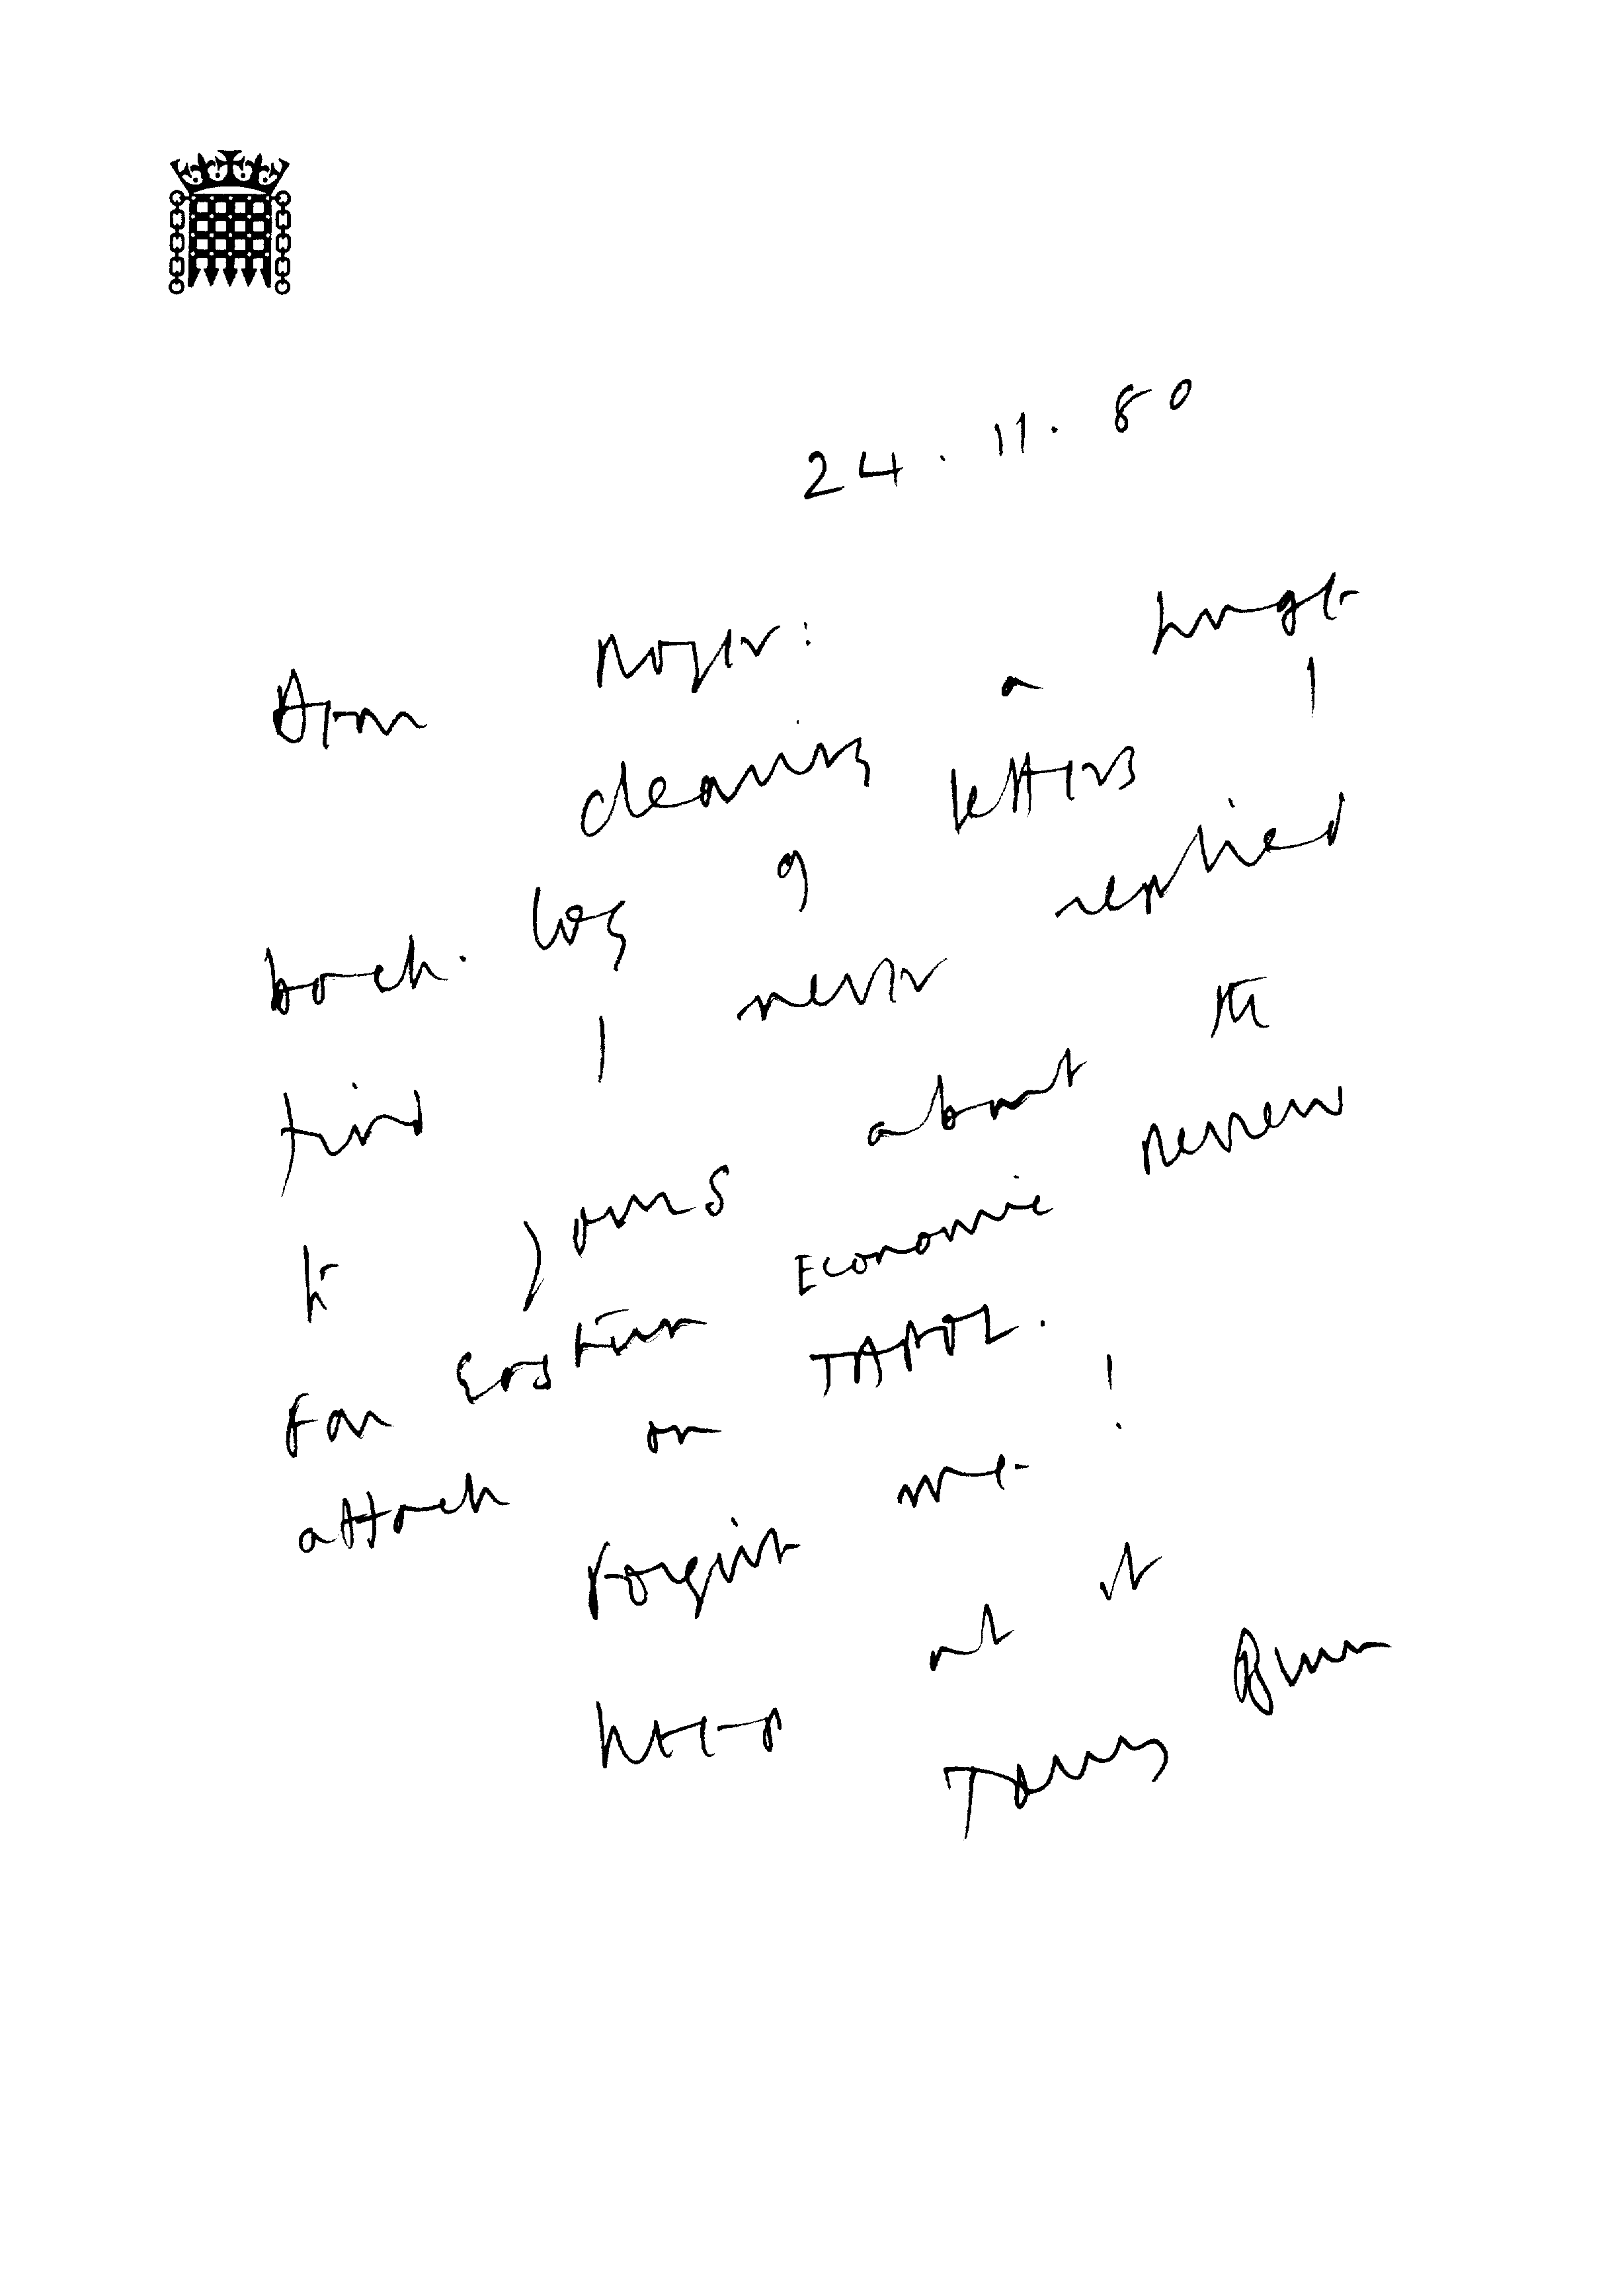 24.11.80
Dear Roger:
clearing a huge
back.log of letters I
find I never replied
to yours about the
Far Eastern Economic Review
attack on TAPOL.
Forgive me!
Keep at it
Tony Benn